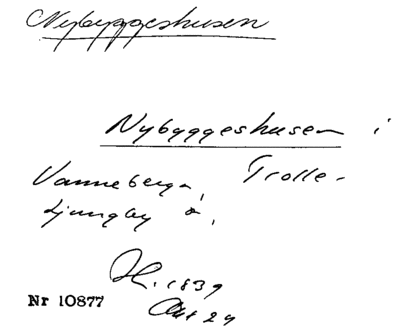 Nybyggeshusen
Nybyggeshusen i
Vanneberga, Trolle-
Ljungby s,
H. 1839
Okt 24
Nr 10877